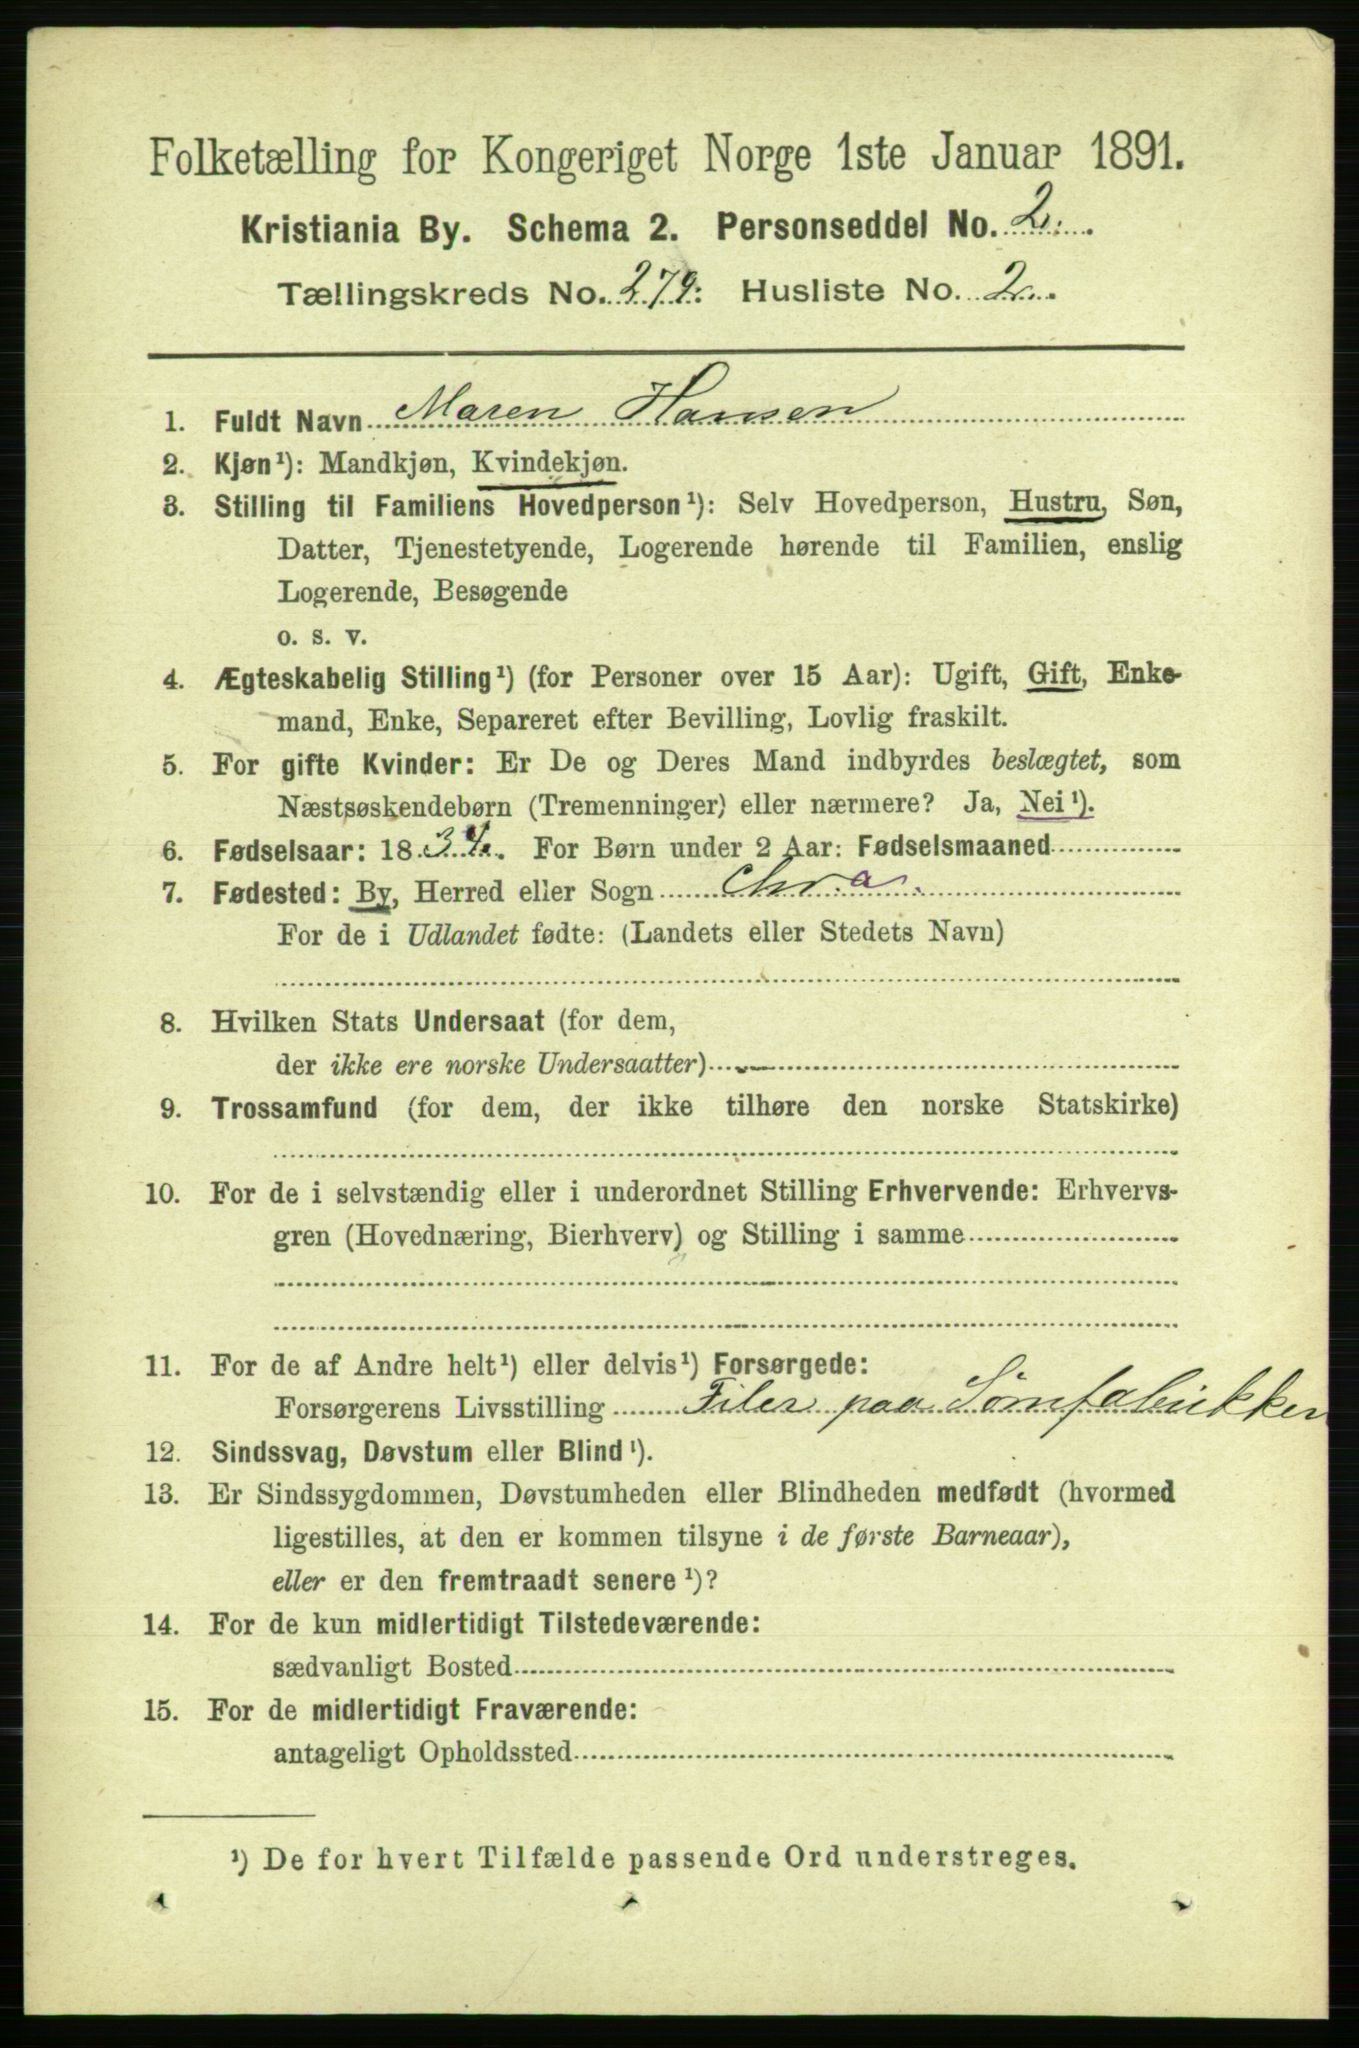 Folketælling for Kongeriget Norge 1ste Januar 1891.
Kristiania By. Schema 2. Personseddel No. 2.
Tællingskreds No. 279: Husliste No. 2.
1. Fuldt Navn Maren Hansen
2. Kjøn¹): Mandkjøn, Kvindekjøn.
3. Stilling til Familiens Hovedperson¹): Selv Hovedperson, Hustru, Søn,
Datter, Tjenestetyende, Logerende hørende til Familien, enslig
Logerende, Besøgende
o. s. v.
4. Ægteskabelig Stilling¹) (for Personer over 15 Aar): Ugift, Gift, Enke-
mand, Enke, Separeret efter Bevilling, Lovlig fraskilt.
5. For gifte Kvinder: Er De og Deres Mand indbyrdes beslægtet, som
Næstsøskendebørn (Tremenninger) eller nærmere? Ja, Nei¹).
6. Fødselsaar: 1834. For Børn under 2 Aar: Fødselsmaaned
7. Fødested: By, Herred eller Sogn Chr.a.
For de i Udlandet fødte: (Landets eller Stedets Navn)
8. Hvilken Stats Undersaat (for dem,
der ikke ere norske Undersaatter)
9. Trossamfund (for dem, der ikke tilhøre den norske Statskirke)
10. For de i selvstændig eller i underordnet Stilling Erhvervende: Erhvervs-
gren (Hovednæring, Bierhverv) og Stilling i samme
11. For de af Andre helt¹) eller delvis¹) Forsørgede:
Forsørgerens Livsstilling Filer paa Sömfabrikken
12. Sindssvag, Døvstum eller Blind¹).
13. Er Sindssygdommen, Døvstumheden eller Blindheden medfødt (hvormed
ligestilles, at den er kommen tilsyne i de første Barneaar),
eller er den fremtraadt senere¹)?
14. For de kun midlertidigt Tilstedeværende:
sædvanligt Bosted
15. For de midlertidigt Fraværende:
antageligt Opholdssted
¹) De for hvert Tilfælde passende Ord understreges.